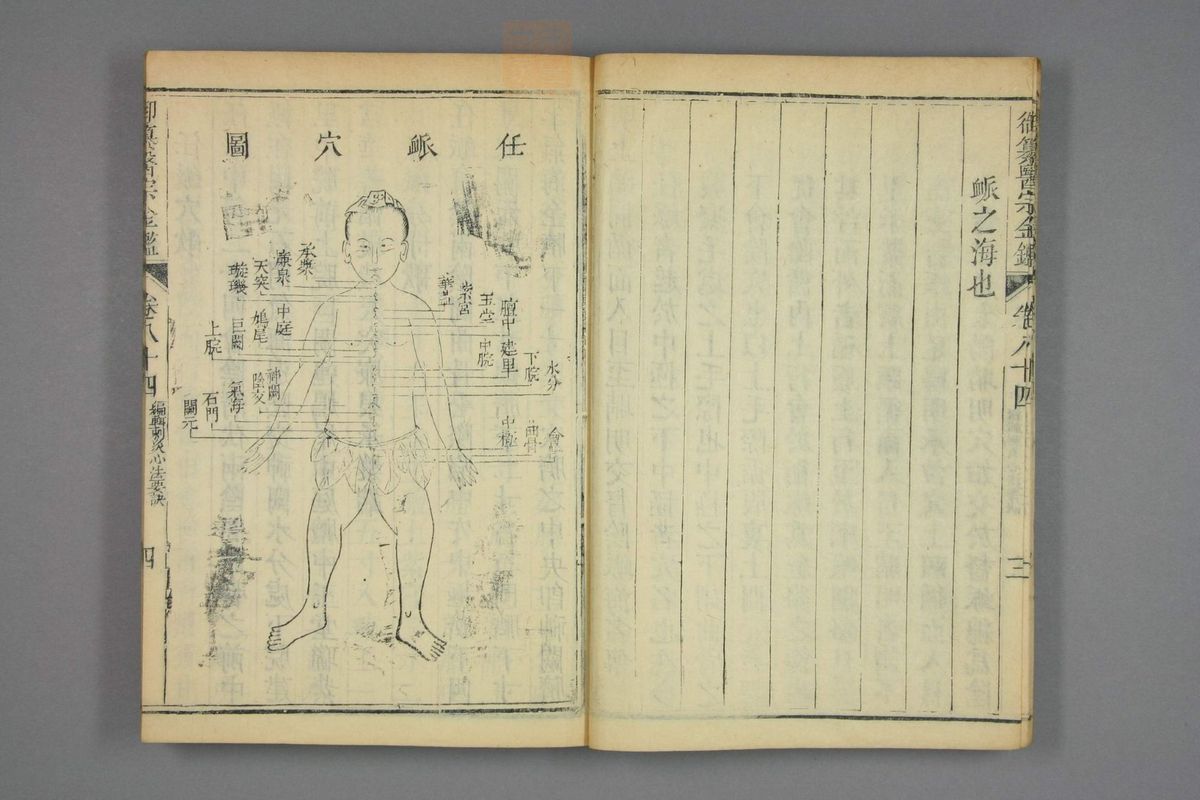 御纂醫宗金鑑
卷八十四
三
衇之海也
任衇穴圖
會陰
曲骨
中極
水分
下脘
建里
中脘
膻中
玉堂
紫宮
華蓋
承漿
廉泉
天突
璇璣
中庭
鳩尾
巨闕
上脘
神闕
陰交
氣海
石門
關元
御纂醫宗金鑑
卷八十四
編輯刺灸心法要訣
四